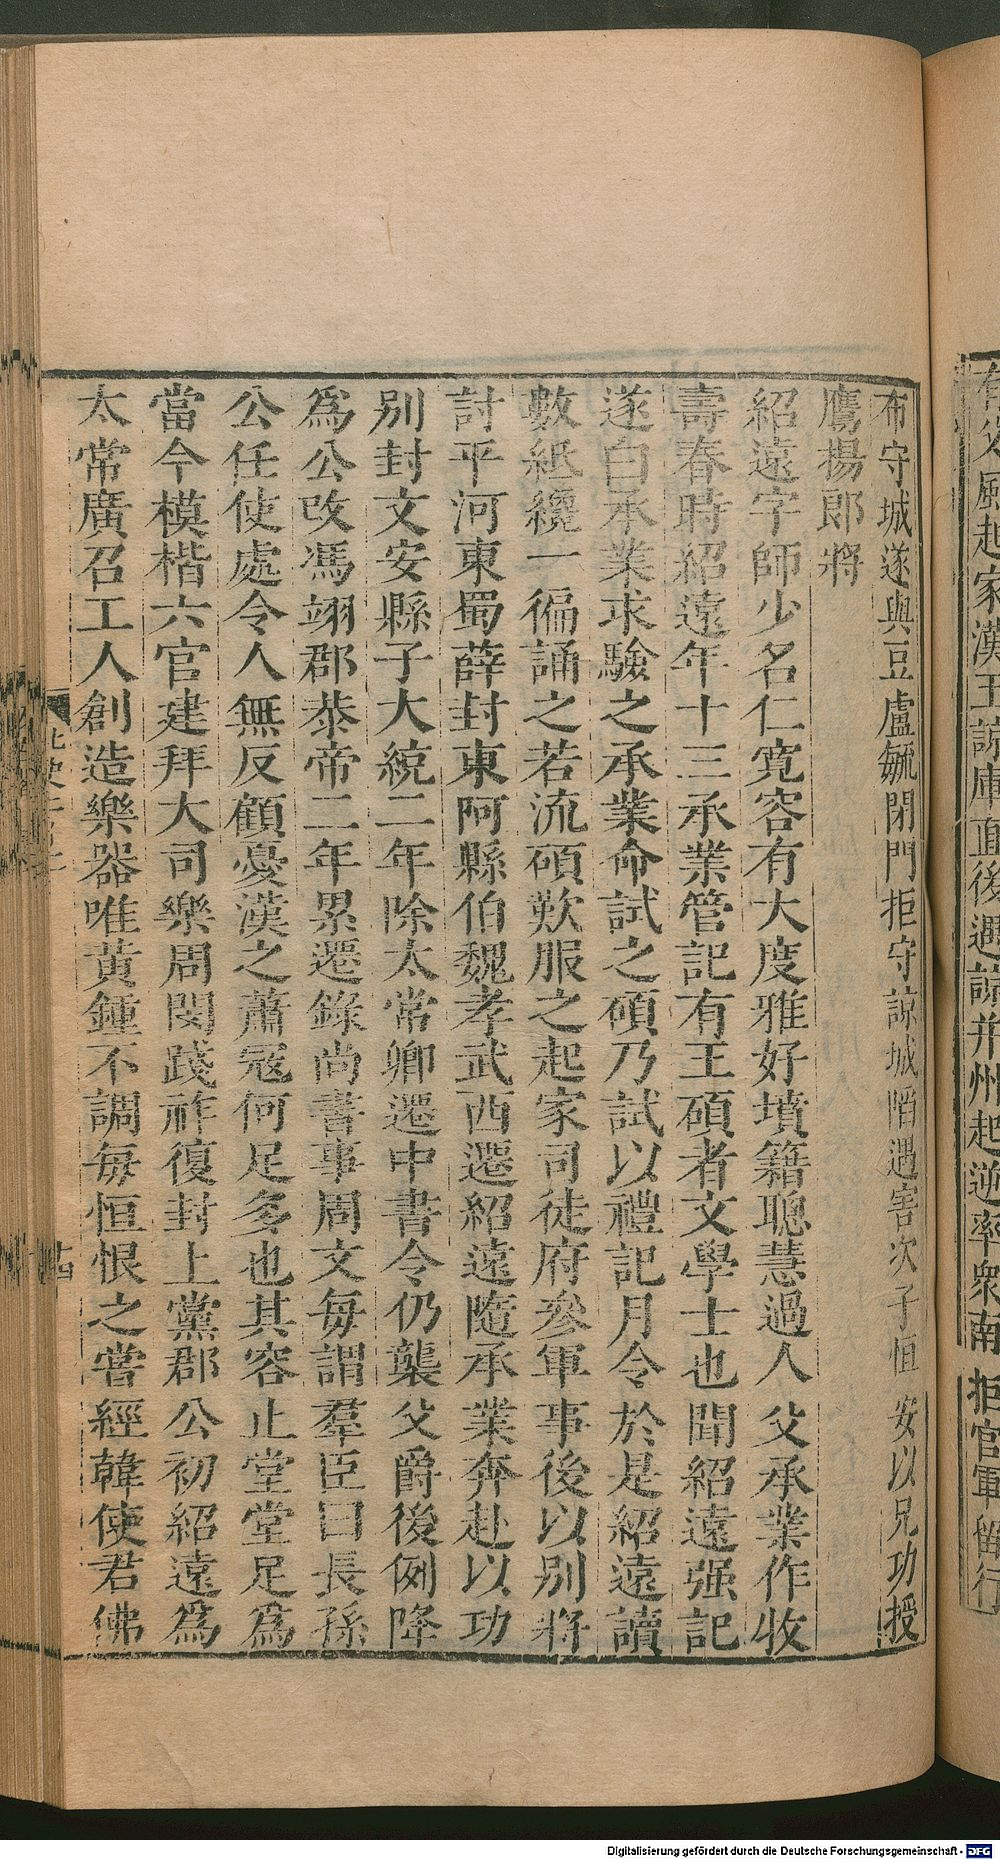 布守城遂與豆盧毓閉門拒守諒城陷遇害次子恒安以兄功授
鷹揚郎將
紹遠字師少名仁寬容有大度雅好墳籍聰慧過人父承業作收
壽春時紹遠年十三承業管記有王碩者文學士也聞紹遠强記
遂白承業求驗之承業命試之碩乃試以禮記月令於是紹遠讀
數紙纔一徧誦之若流碩歎服之起家司徒府參軍事後以別將
討平河東蜀薛封東阿縣伯魏孝武西遷紹遠隨承業奔赴以功
別封文安縣子大統二年除太常卿遷中書令仍襲父爵後例降
為公改馮翊郡恭帝二年累遷錄尚書事周文每謂羣臣曰長孫
公任使處令人無反顧憂漢之蕭冦何足多也其容止堂堂足為
當今模楷六官建拜大司樂周閔踐祚復封上黨郡公初紹遠為
太常廣召工人創造樂器唯黃鍾不調每恒恨之嘗經韓使君佛
風起家漢王諒庫直後遇諒并州起逆率衆南拒官軍留行
Digitalisierung gefördert durch die Deutsche Forschungsgemeinschaft - DFG